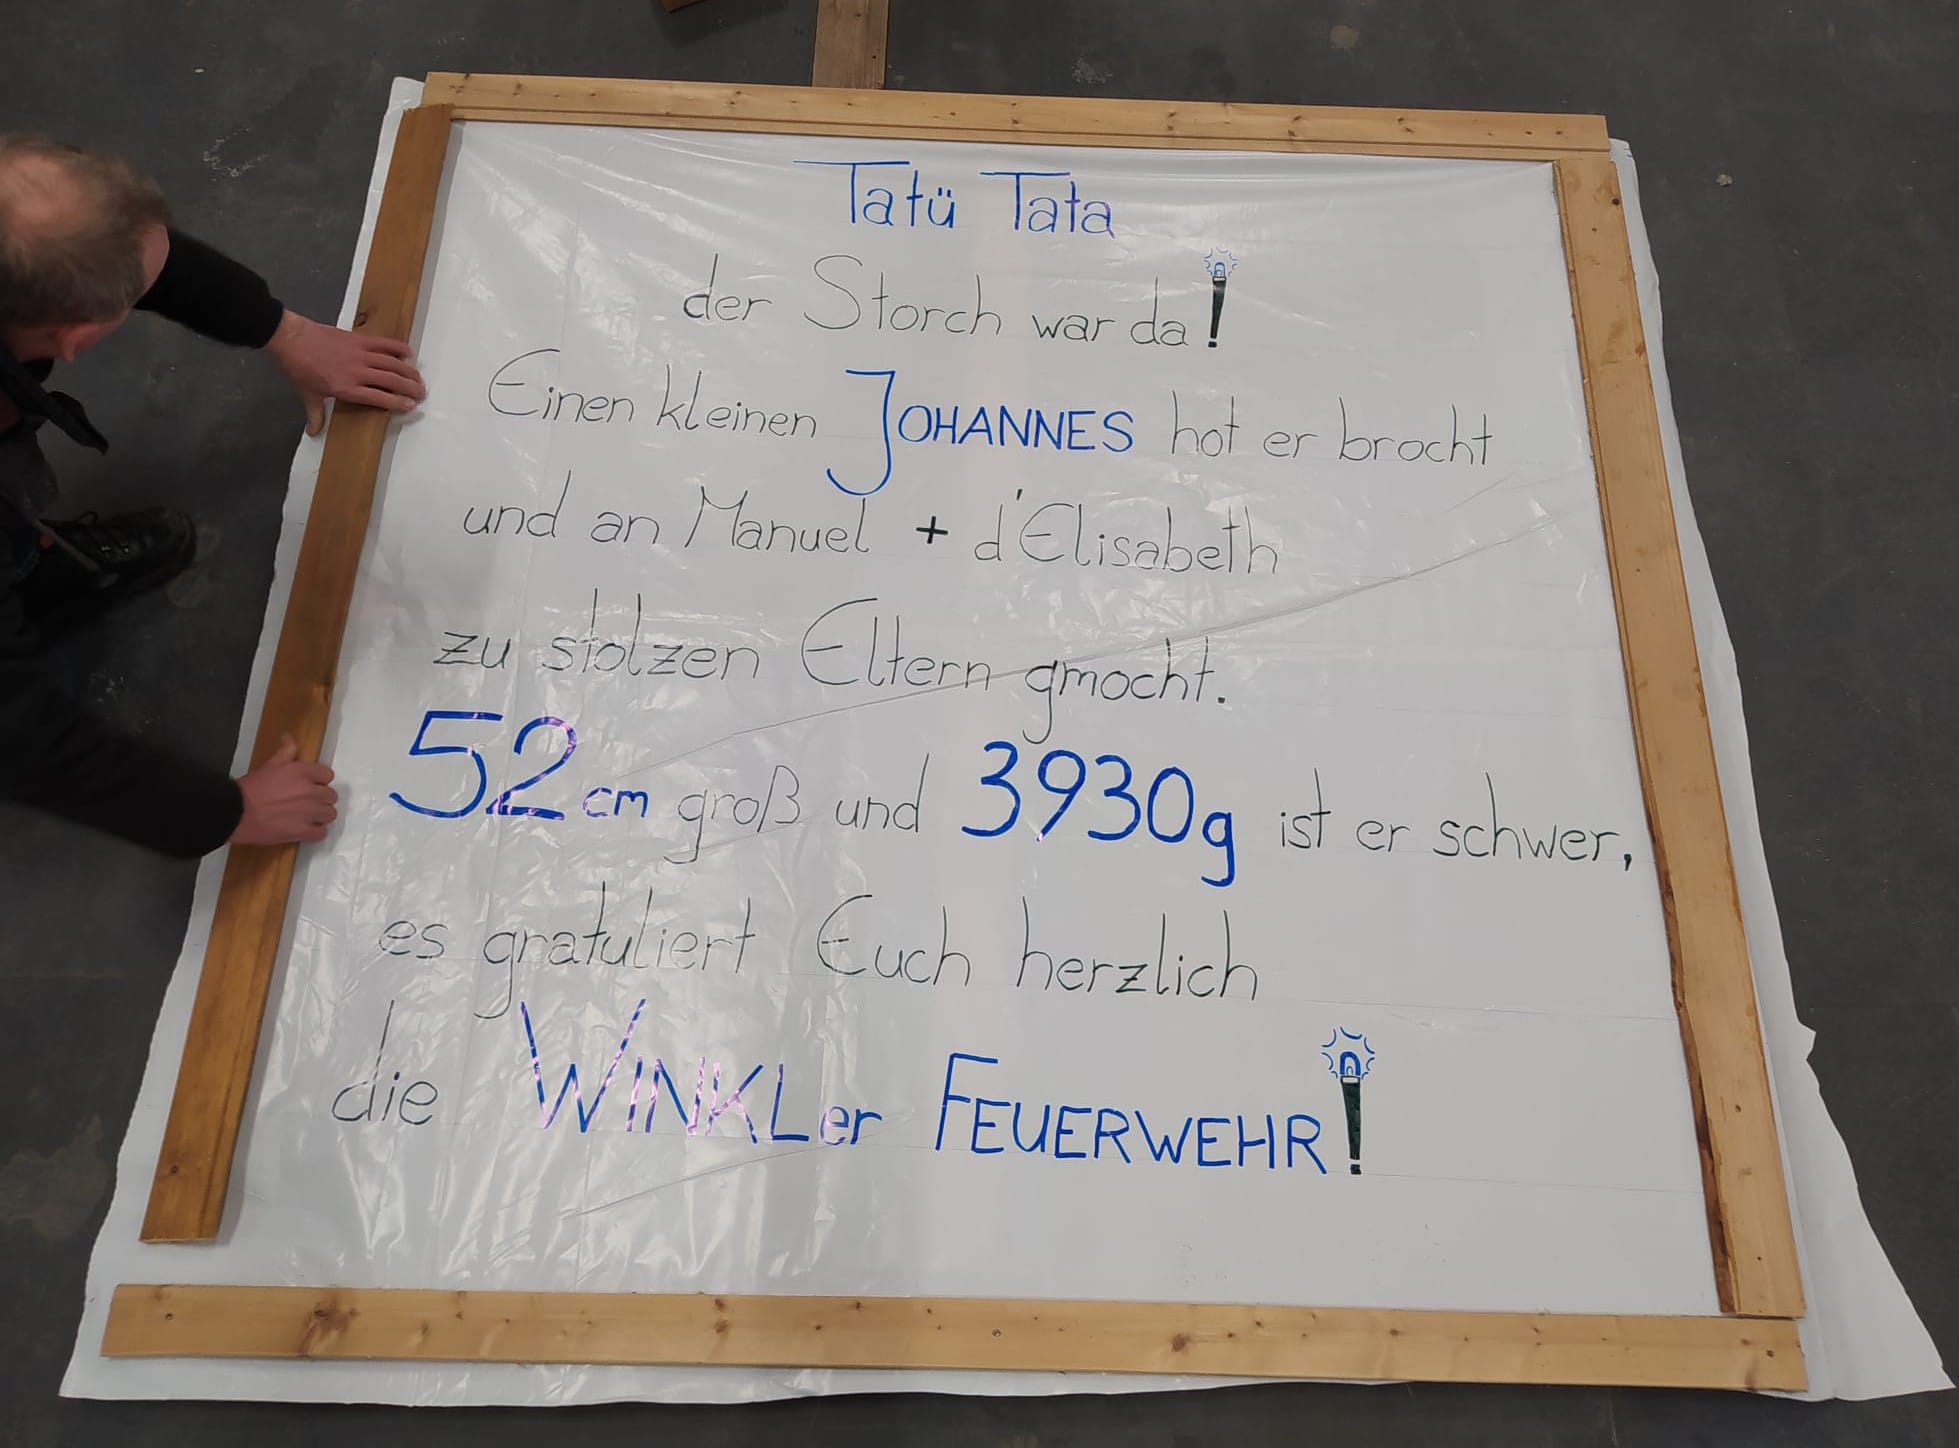 Tatü Tata
der Storch war da!
Einen kleinen JOHANNES hot er brocht
und an Manuel + d'Elisabeth
zu stolzen Eltern gmocht.
52 cm groß und 3930g ist er schwer,
es gratuliert Euch herzlich
die WINKLer FEUERWEHR!